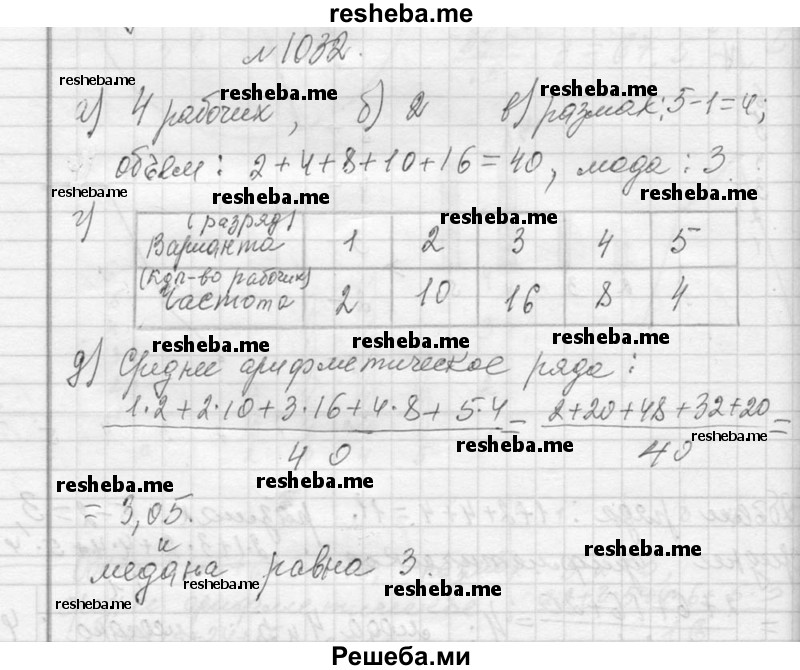 resheba.me
№1032.
resheba.me
resheba.me
resheba.me
а) 4 рабочих, б) 2 в) размах: 5-1=4;
объём: 2+4+8+10+16=40, мода: 3.
resheba.me
resheba.me
resheba.me
resheba.me
г) (разряд) Варианта 1 2 3 4 5
(кол-во рабочих) Частота 2 10 16 8 4
resheba.me
resheba.me
resheba.me
д) Среднее арифметическое ряда:
1·2+2·10+3·16+4·8+5·4 = 2+20+48+32+20 =
resheba.me
resheba.me
40 40
resheba.me
resheba.me
= 3,05.
resheba.me
и
медана равна 3.
resheba.me
resheba.me
resheba.me
Решеба.ми